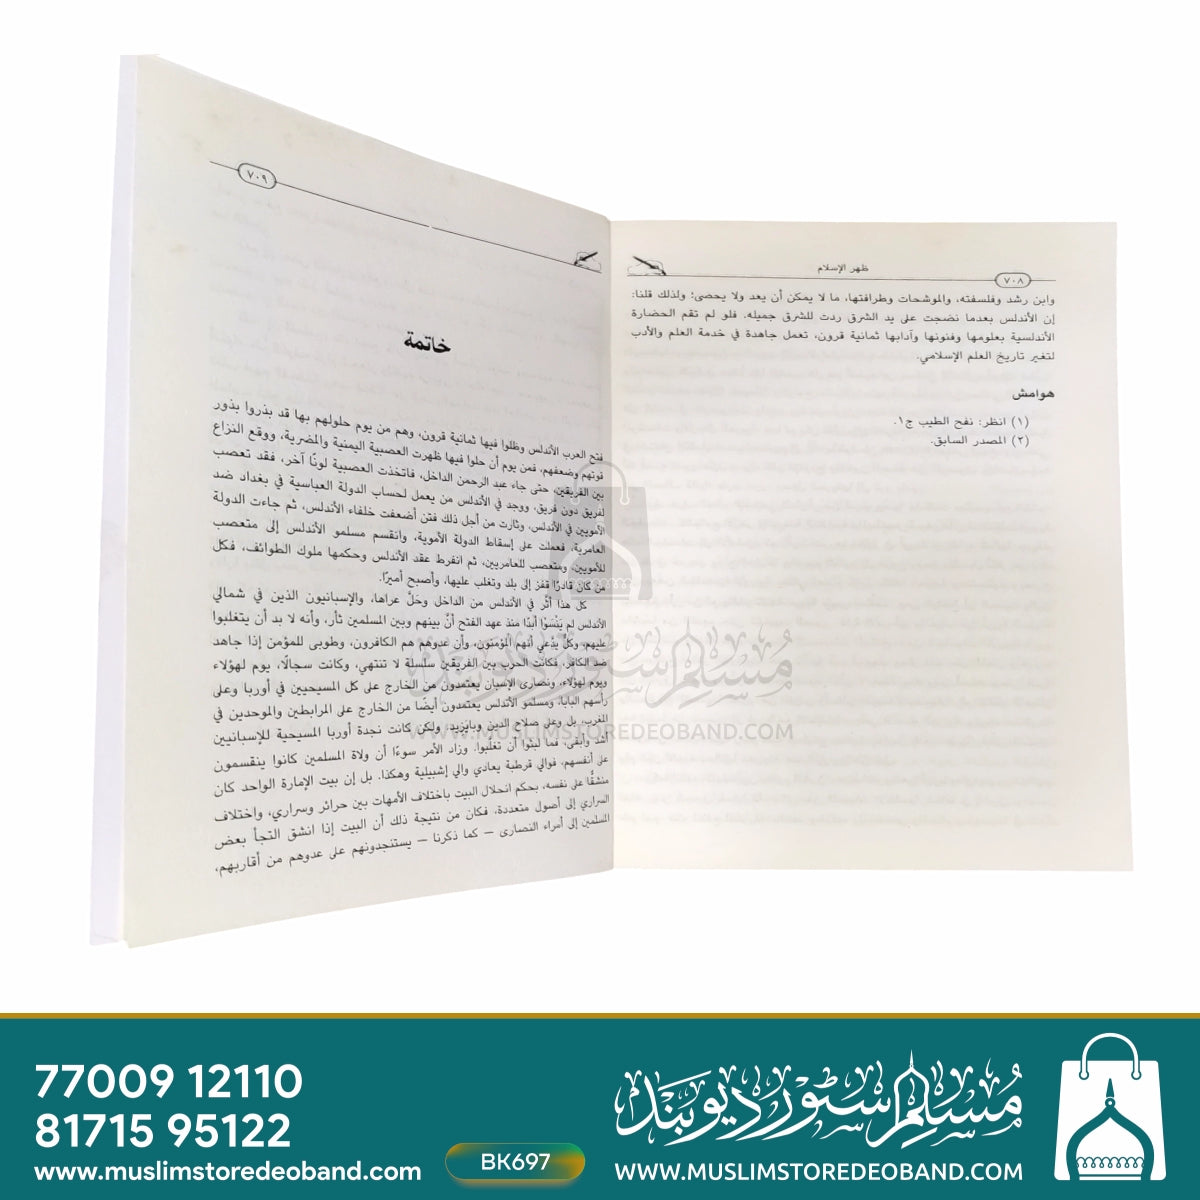 ظهر الإسلام
٧٠٨
وابن رشد وفلسفته، والموشحات وطرافتها، ما لا يمكن أن يعد ولا يحصى؛ ولذلك قلنا:
إن الأندلس بعدما نضجت على يد الشرق ردت للشرق جميله. فلو لم تقم الحضارة
الأندلسية بعلومها وفنونها وآدابها ثمانية قرون، تعمل جاهدة في خدمة العلم والأدب
لتغير تاريخ العلم الإسلامي.
هوامش
(١) انظر: نفح الطيب ج١.
(٢) المصدر السابق.
٧٠٩
خاتمة
فتح العرب الأندلس وظلوا فيها ثمانية قرون، وهم من يوم حلولهم بها قد بذروا بذور
قوتهم وضعفهم، فمن يوم أن حلوا فيها ظهرت العصبية اليمنية والمضرية، ووقع النزاع
بين الفريقين، حتى جاء عبد الرحمن الداخل، فاتخذت العصبية لونًا آخر، فقد تعصب
لفريق دون فريق، ووجد في الأندلس من يعمل لحساب الدولة العباسية في بغداد ضد
الأمويين في الأندلس، وثارت من أجل ذلك فتن أضعفت خلفاء الأندلس، ثم جاءت الدولة
العامرية، فعملت على إسقاط الدولة الأموية، وانقسم مسلمو الأندلس إلى متعصب
للأمويين ومتعصب للعامريين، ثم انفرط عقد الأندلس وحكمها ملوك الطوائف، فكل
من كان قادرًا قفز إلى بلد وتغلب عليها، وأصبح أميرًا.
كل هذا أثر في الأندلس من الداخل وحَلَّ عراها، والإسبانيون الذين في شمالي
الأندلس لم يَنْسَوْا أبدًا منذ عهد الفتح أنَّ بينهم وبين المسلمين ثأر، وأنه لا بد أن يتغلبوا
عليهم، وكلٌّ يدَّعي أنهم المؤمنون، وأن عدوهم هم الكافرون، وطوبى للمؤمن إذا جاهد
ضد الكافر. فكانت الحرب بين الفريقين سلسلة لا تنتهي، وكانت سجالًا، يوم لهؤلاء
ويوم لهؤلاء، ونصارى الإسبان يعتمدون من الخارج على كل المسيحيين في أوربا وعلى
رأسهم البابا، ومسلمو الأندلس يعتمدون أيضًا من الخارج على المرابطين والموحدين في
المغرب، بل وعلى صلاح الدين وبايزيد، ولكن كانت نجدة أوربا المسيحية للإسبانيين
أشد وأبقى، فما لبثوا أن تغلبوا. وزاد الأمر سوءًا أن ولاة المسلمين كانوا ينقسمون
على أنفسهم، فوالي قرطبة يعادي والي إشبيلية وهكذا. بل إن بيت الإمارة الواحد كان
منشقًّا على نفسه، بحكم انحلال البيت باختلاف الأمهات بين حرائر وسراري، واختلاف
السراري إلى أصول متعددة. فكان من نتيجة ذلك أن البيت إذا انشق التجأ بعض
المسلمين إلى أمراء النصارى — كما ذكرنا — يستنجدونهم على عدوهم من أقاربهم،
مسلم سٹور دیوبند
WWW.MUSLIMSTOREDEOBAND.COM
77009 12110
81715 95122
www.muslimstoredeoband.com
BK697
مسلم سٹور دیوبند
WWW.MUSLIMSTOREDEOBAND.COM